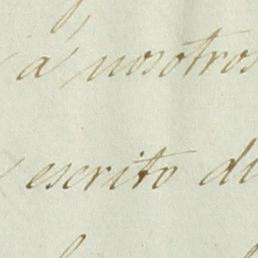 á nosotros
escrito di